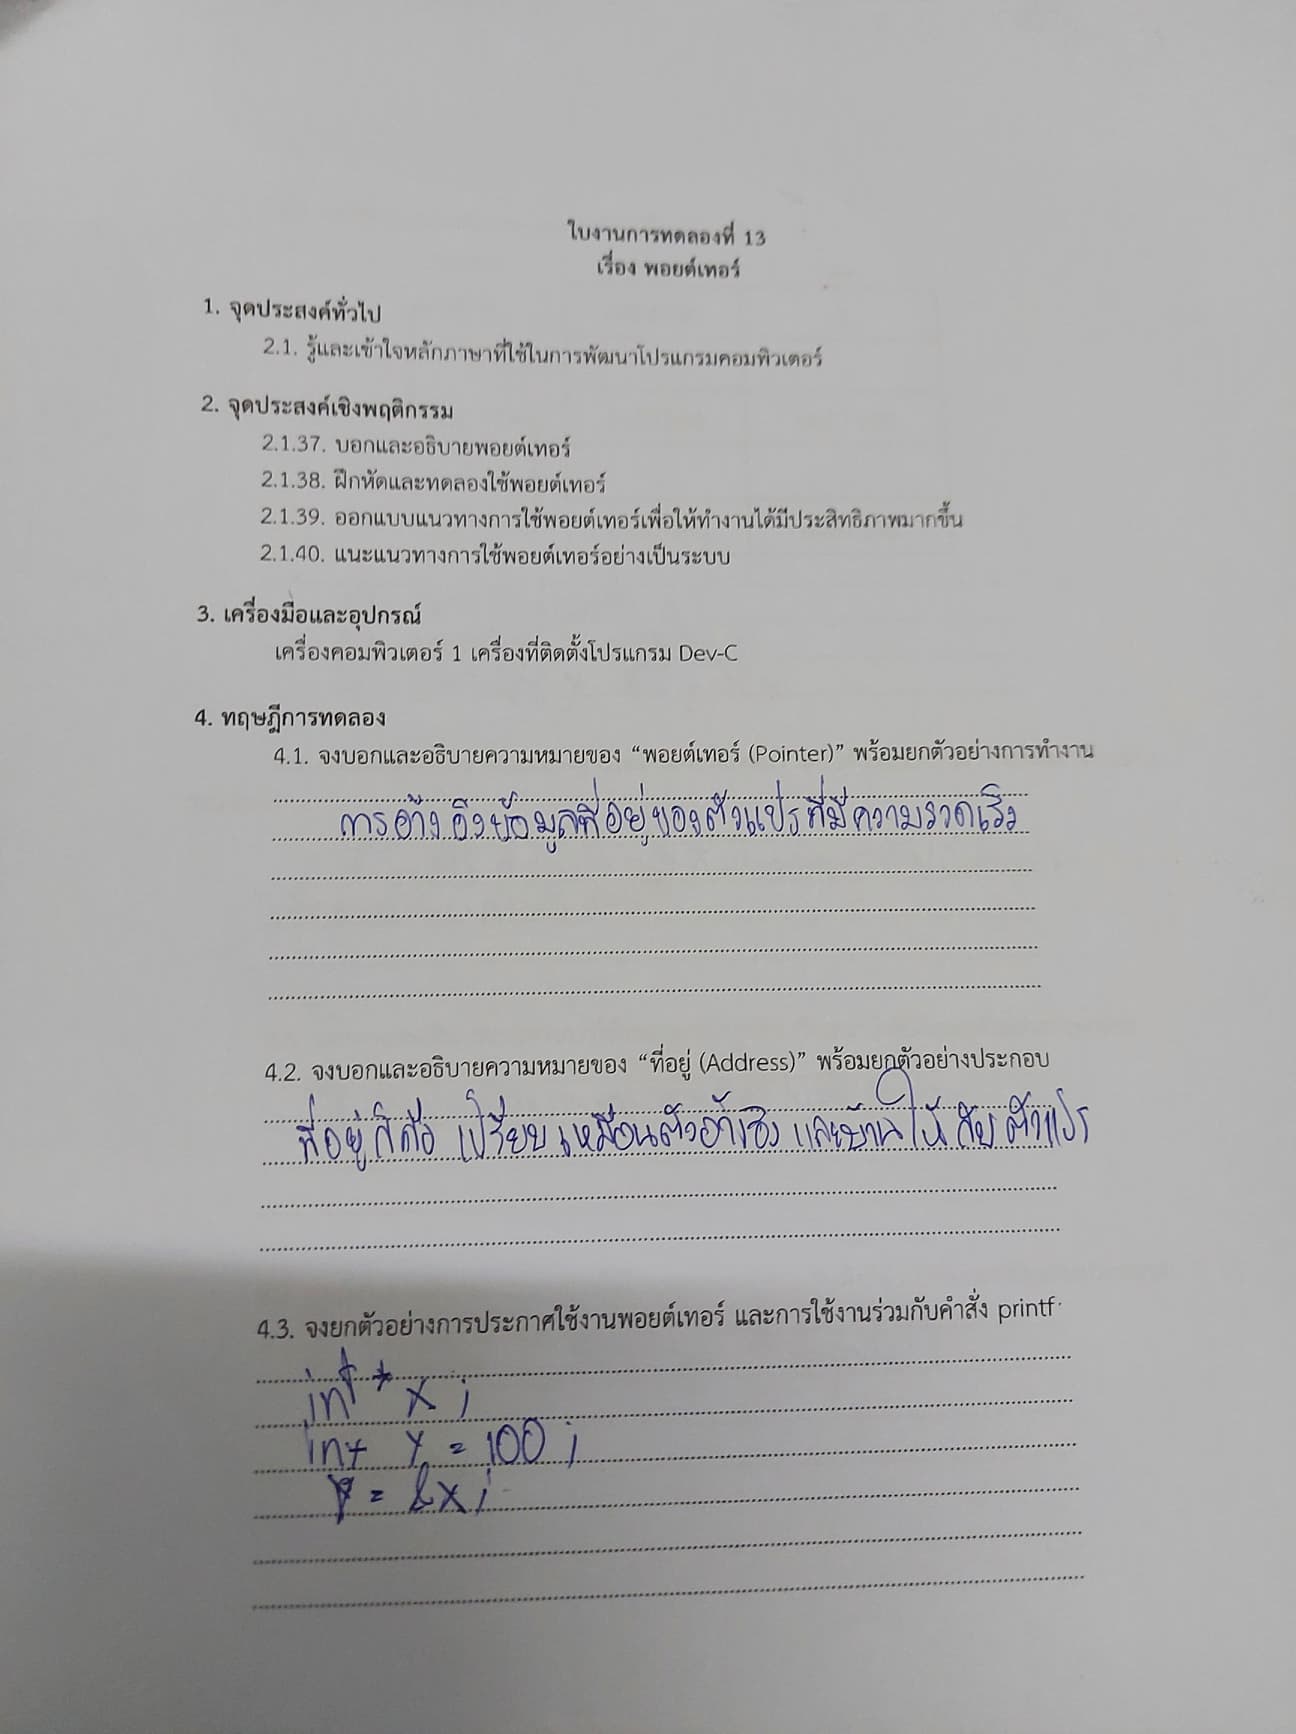 ใบงานการทดลองที่ 13
เรื่อง พอยต์เทอร์
1. จุดประสงค์ทั่วไป
2.1. รู้และเข้าใจหลักภาษาที่ใช้ในการพัฒนาโปรแกรมคอมพิวเตอร์
2. จุดประสงค์เชิงพฤติกรรม
2.1.37. บอกและอธิบายพอยต์เทอร์
2.1.38. ฝึกหัดและทดลองใช้พอยต์เทอร์
2.1.39. ออกแบบแนวทางการใช้พอยต์เทอร์เพื่อให้ทำงานได้มีประสิทธิภาพมากขึ้น
2.1.40. แนะแนวทางการใช้พอยต์เทอร์อย่างเป็นระบบ
3. เครื่องมือและอุปกรณ์
เครื่องคอมพิวเตอร์ 1 เครื่องที่ติดตั้งโปรแกรม Dev-C
4. ทฤษฎีการทดลอง
4.1. จงบอกและอธิบายความหมายของ “พอยต์เทอร์ (Pointer)” พร้อมยกตัวอย่างการทำงาน
การอ้างอิงข้อมูลที่อยู่ของตัวแปรที่มีความรวดเร็ว
4.2. จงบอกและอธิบายความหมายของ “ที่อยู่ (Address)” พร้อมยกตัวอย่างประกอบ
ที่อยู่ก็คือ เปรียบเหมือนตัวอ้างอิง และบ้านให้กับตัวแปร
4.3. จงยกตัวอย่างการประกาศใช้งานพอยต์เทอร์ และการใช้งานร่วมกับคำสั่ง printf
int * x ;
int y = 100 ;
= &x ;